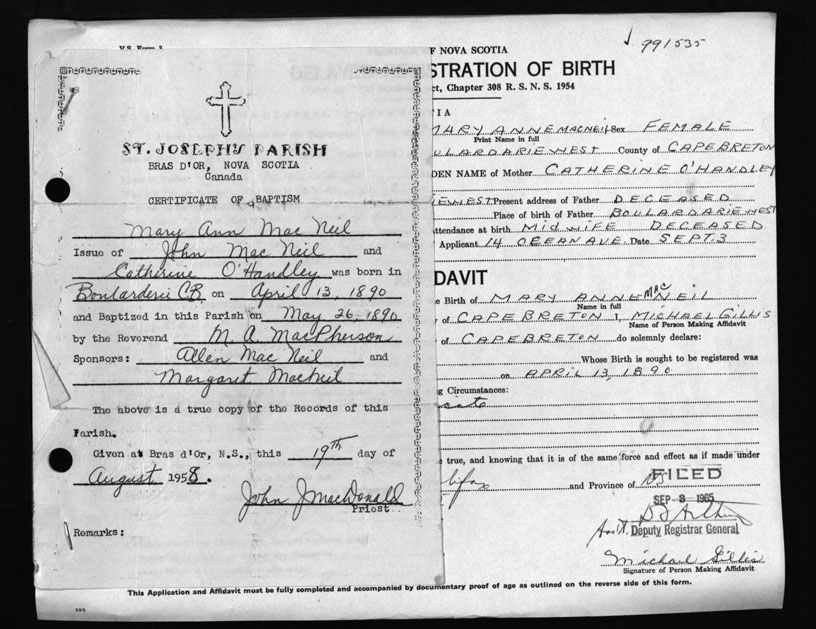 V.S. Form 3
ST. JOSEPH'S PARISH
BRAS D'OR, NOVA SCOTIA
Canada
CERTIFICATE OF BAPTISM
Mary Ann Mac Neil
Issue of John Mac Neil and
Catherine O'Handley was born in
Boularderie C.B. on April 13, 1890
and Baptized in this Parish on May 26, 1890
by the Reverend M. A. MacPherson
Sponsors: Allen Mac Neil and
Margaret MacNeil
The above is a true copy of the Records of this
Parish.
Given at Bras d'Or, N.S., this 19th day of
August 1958.
John J MacDonald
Priest
Remarks:
991535
F NOVA SCOTIA
STRATION OF BIRTH
ct, Chapter 308 R. S. N. S. 1954
IA
MARY ANNE MACNEIL Sex FEMALE
Print Name in full
OULARDARIE WEST County of CAPE BRETON
DEN NAME of Mother CATHERINE O'HANDLEY
IE WEST Present address of Father DECEASED
Place of birth of Father BOULARDARIE WEST
ttendance at birth MIDWIFE DECEASED
Applicant 14 OCEAN AVE. Date SEPT. 3
DAVIT
e Birth of MARY ANNE MAC NEIL
Name in full
of CAPE BRETON I, MICHAEL GILLIS
Name of Person Making Affidavit
of CAPE BRETON do solemnly declare:
Whose Birth is sought to be registered was
on APRIL 13, 1890
g Circumstances:
cate
e true, and knowing that it is of the same force and effect as if made under
lifax and Province of NS
FILED
SEP - 3 1965
Ass't. Deputy Registrar General
Michael Gillis
Signature of Person Making Affidavit
This Application and Affidavit must be fully completed and accompanied by documentary proof of age as outlined on the reverse side of this form.